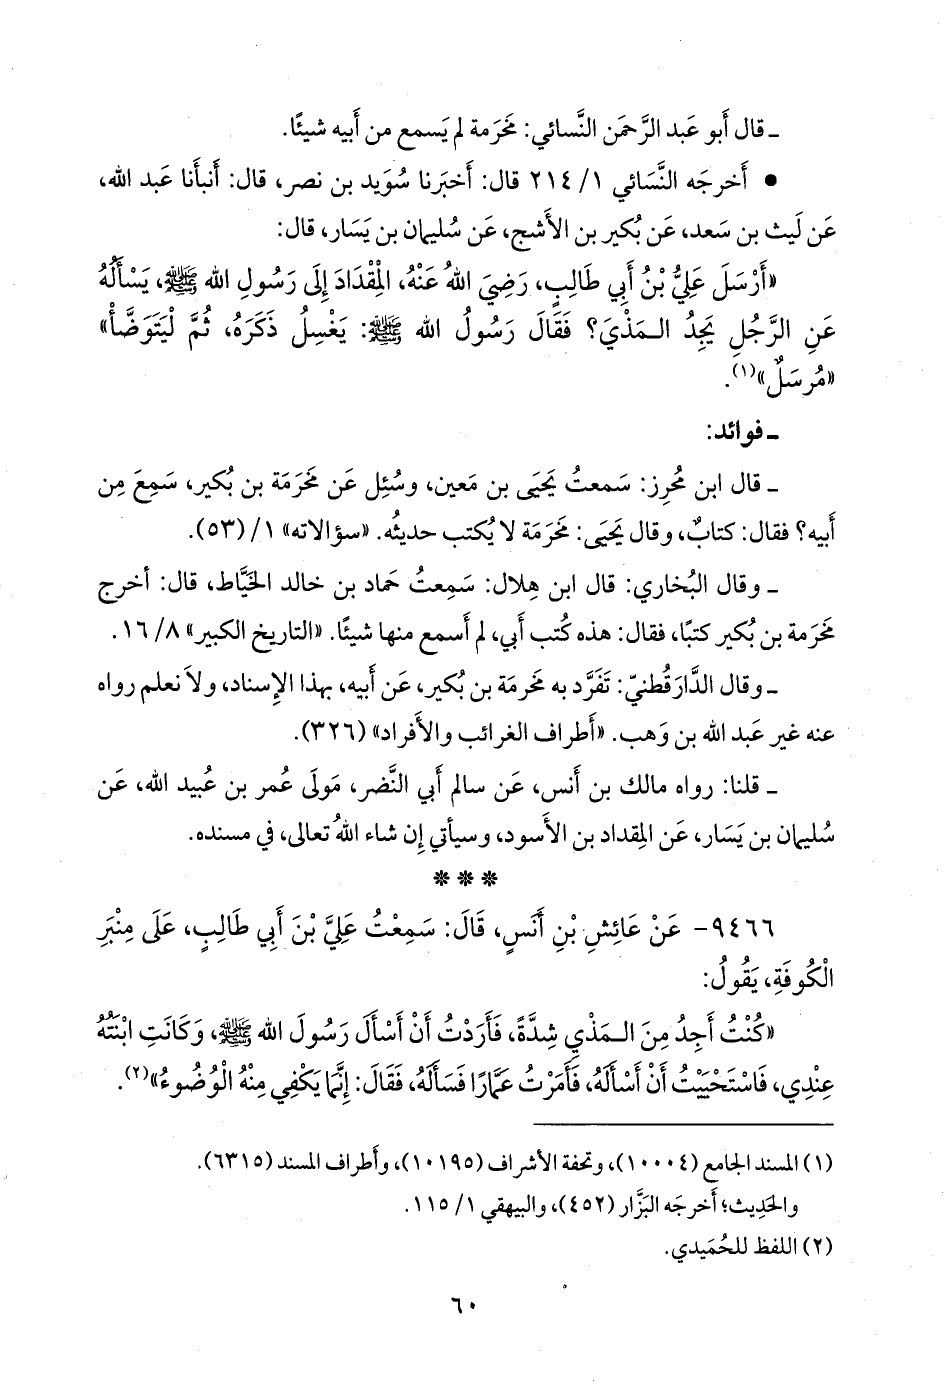 ـ قال أَبو عَبد الرَّحمَن النَّسائي: مَخرَمة لم يَسمع من أَبيه شيئًا.
• أَخرجَه النَّسَائي ١/ ٢١٤ قال: أَخبَرنا سُوَيد بن نصر، قال: أَنبأَنا عَبد الله،
عَن لَيث بن سَعد، عَن بُكير بن الأَشج، عَن سُليمان بن يَسَار، قال:
«أَرْسَلَ عَلِيُّ بْنُ أَبِي طَالِبٍ، رَضِيَ اللهُ عَنْهُ، المِقْدَادَ إِلَى رَسُولِ الله ﷺ، يَسْأَلُهُ
عَنِ الرَّجُلِ يَجِدُ الـمَذْيَ؟ فَقَالَ رَسُولُ الله ﷺ: يَغْسِلُ ذَكَرَهُ، ثُمَّ لْيَتَوَضَّأْ»
«مُرسَلٌ»(١).
ـ فوائد:
ـ قال ابن مُحرِز: سَمعتُ يَحيَى بن مَعين، وسُئِل عَن مَخرَمَة بن بُكير، سَمِعَ مِن
أَبيه؟ فقال: كتابٌ، وقال يَحيَى: مَخرَمَة لا يُكتب حديثُه. «سؤالاته» ١/ (٥٣).
ـ وقال البُخاري: قال ابن هِلال: سَمِعتُ حَماد بن خالد الخَيَّاط، قال: أَخرج
مَخرَمة بن بُكير كتبًا، فقال: هذه كُتب أَبي، لم أَسمع منها شيئًا. «التاريخ الكبير» ٨/ ١٦.
ـ وقال الدَّارَقُطنيّ: تَفَرَّد به مَخرمَة بن بُكير، عَن أَبيه، بهذا الإِسناد، ولاَ نعلم رواه
عنه غير عَبد الله بن وَهب. «أَطراف الغرائب والأَفراد» (٣٢٦).
ـ قلنا: رواه مالك بن أَنس، عَن سالم أَبي النَّضر، مَولَى عُمر بن عُبيد الله، عَن
سُليمان بن يَسَار، عَن المِقداد بن الأَسود، وسيأتي إِن شاء اللهُ تعالى، في مسنده.
* * *
٩٤٦٦- عَنْ عَائِشِ بْنِ أَنَسٍ، قَالَ: سَمِعْتُ عَلِيَّ بْنَ أَبِي طَالِبٍ، عَلَى مِنْبَرِ
الْكُوفَةِ، يَقُولُ:
«كُنْتُ أَجِدُ مِنَ الـمَذْيِ شِدَّةً، فَأَرَدْتُ أَنْ أَسْأَلَ رَسُولَ الله ﷺ، وَكَانَتِ ابْنَتُهُ
عِنْدِي، فَاسْتَحْيَيْتُ أَنْ أَسْأَلَهُ، فَأَمَرْتُ عَمَّارًا فَسَأَلَهُ، فَقَالَ: إِنَّمَا يَكْفِي مِنْهُ الْوُضُوءُ»(٢).
(١) المسند الجامع (١٠٠٠٤)، وتحفة الأشراف (١٠١٩٥)، وأَطراف المسند (٦٣١٥).
والحَدِيث؛ أَخرجَه البَزَّار (٤٥٢)، والبيهقي ١/ ١١٥.
(٢) اللفظ للحُمَيدي.
٦٠